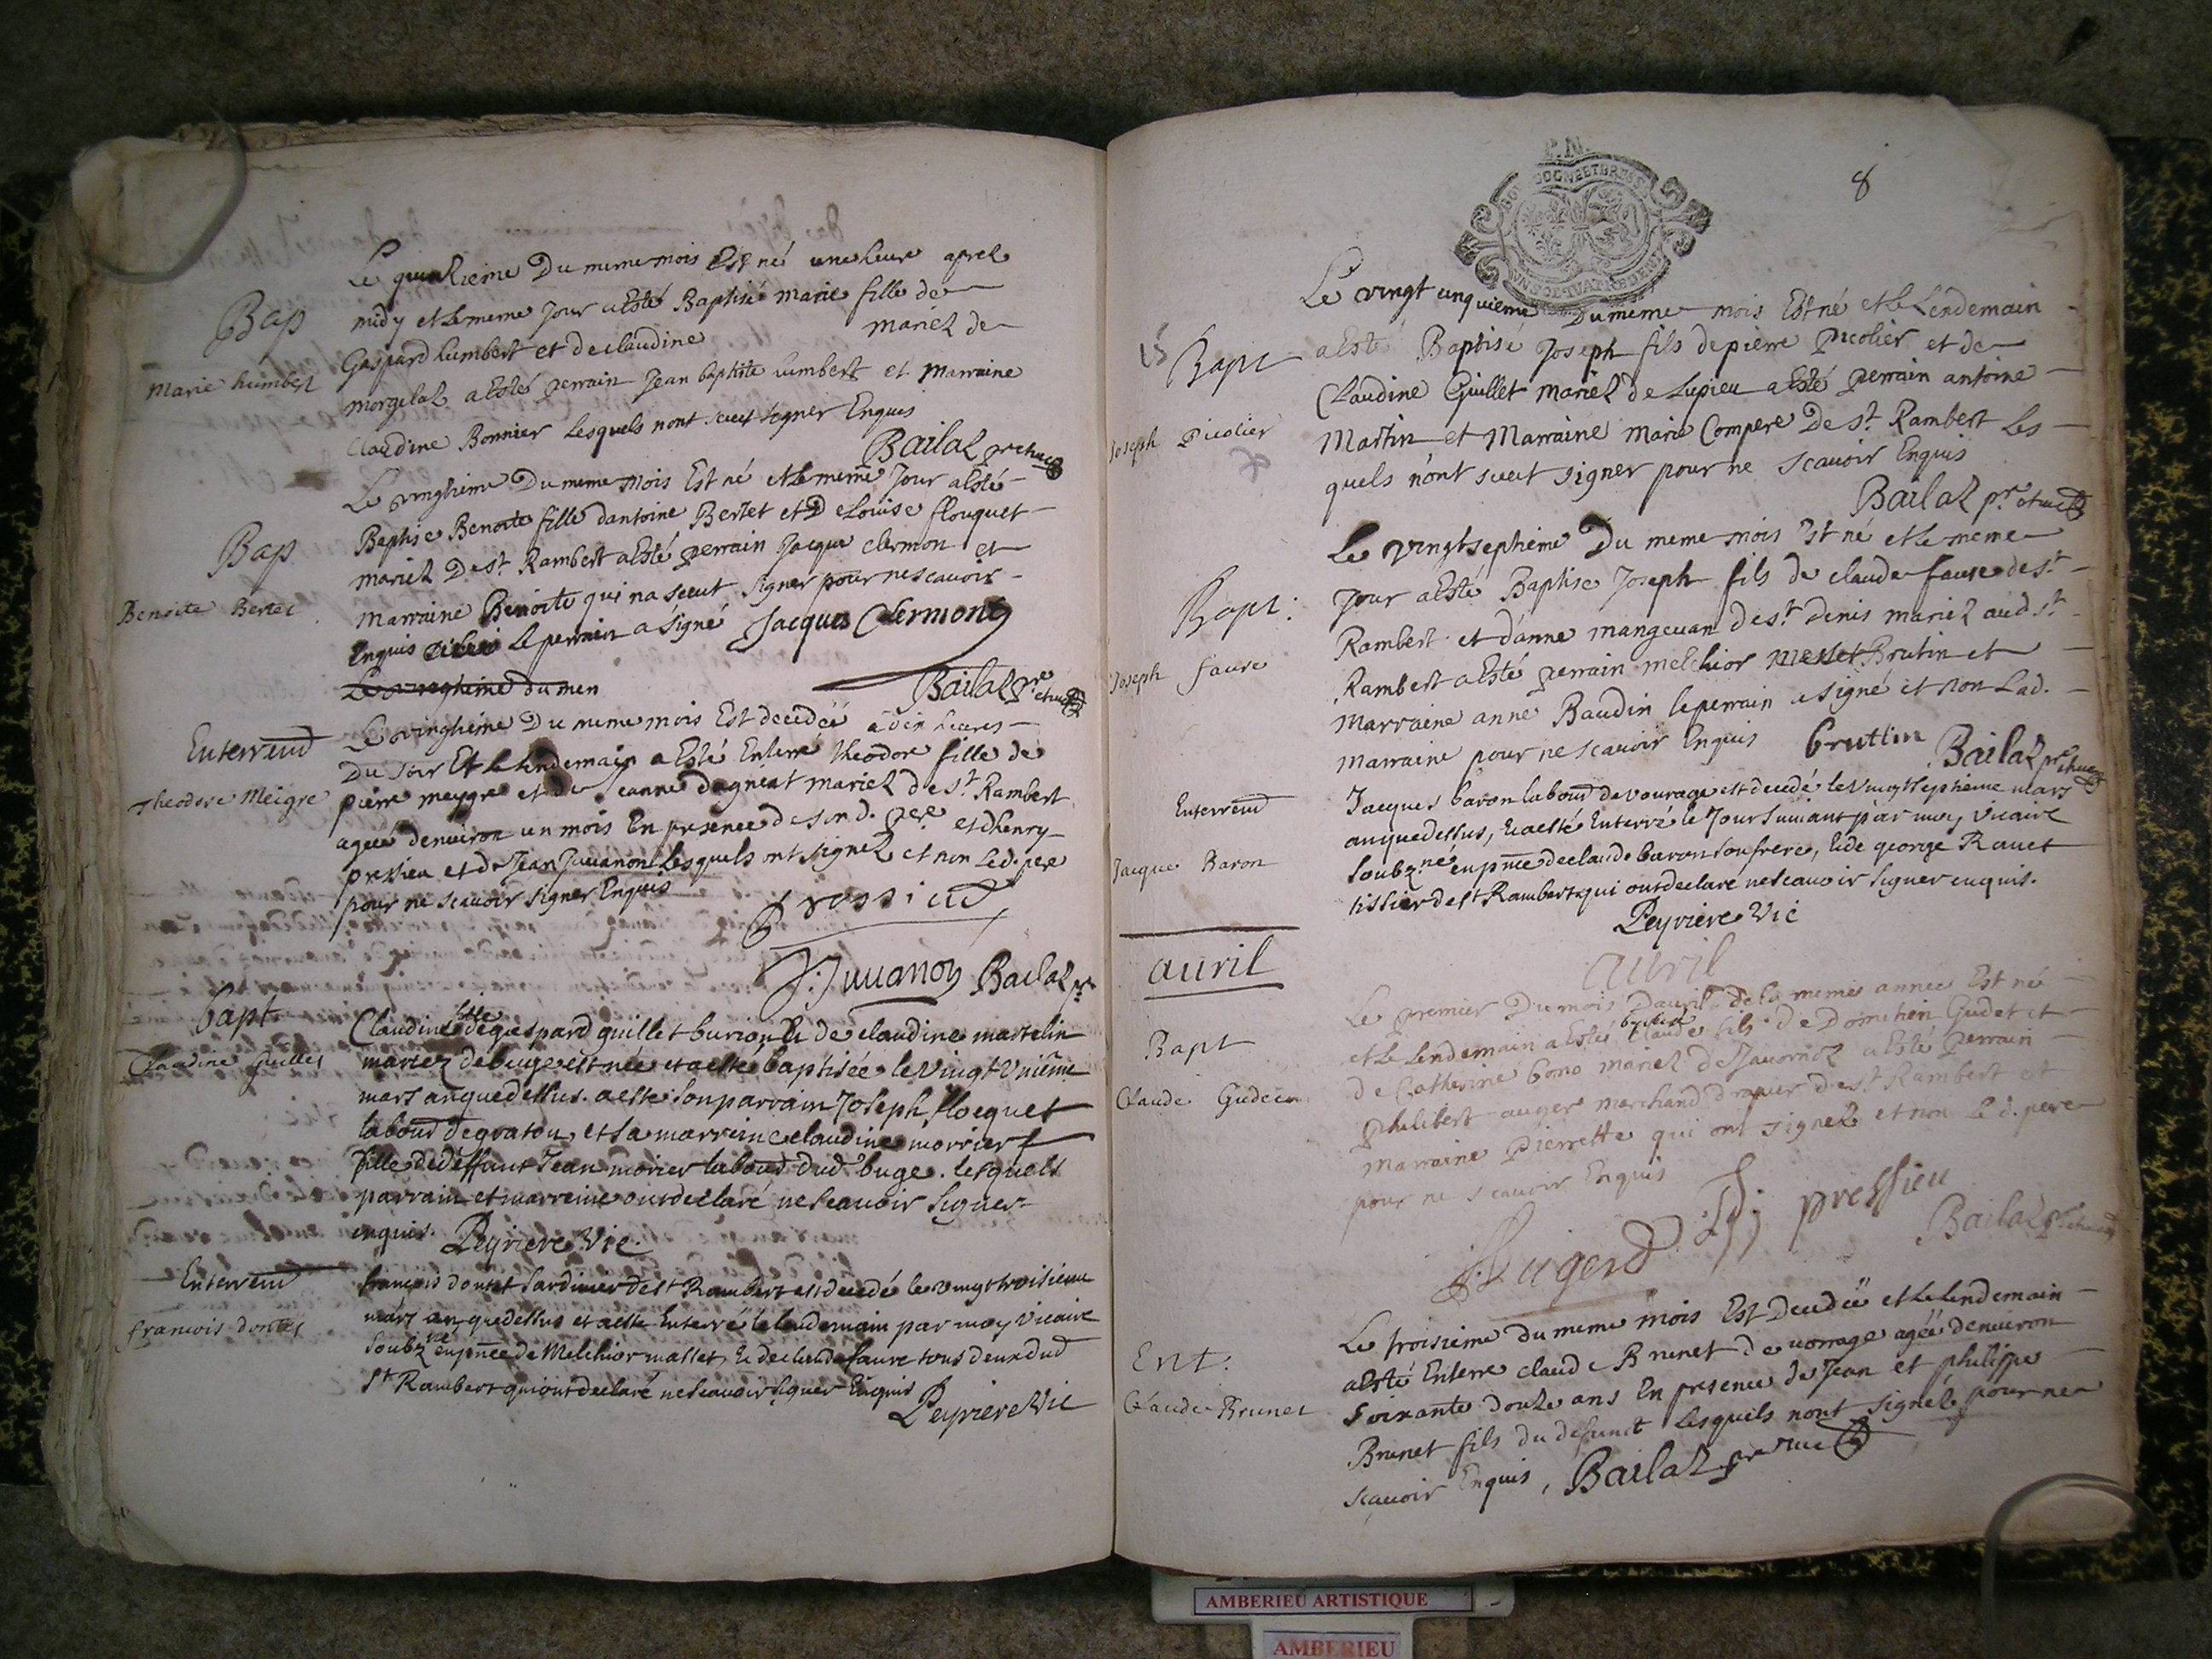 Le quinzieme Du meme mois Est né une heure aprez
Bap
midy et le meme Jour a Esté Baptisé marie fille de
Gaspard humbert et de claudine mariez de
Marie humbert
morgelaz a Esté perrain Jean baptiste humbert et Marraine
Claudine Bonnier Lesquels nont sceut signer Enquis
Bailaz
Le vingtieme Du meme mois Est né et le meme Jour a Esté
Bap
Baptise Benoite fille dantoine Bertet et De Louise flouquet
mariez De st. Rambert a Esté perrain Jacque clermon et
Benoite Bertet
Marraine Benoite qui na sceut signer pour ne scavoir
Enquis le perrain a signé Jacques Clermont
Le vingtieme du mem
Bailaz pre
Enterremt
Le vingtieme Du meme mois Est decedéé a dix heures
Du soir Et le lendemain a Esté Enterré theodore fille de
Theodore Meigre
pierre meygre et de Jeanne dagniat mariez de st. Rambert
agéé denuiron un mois En presence de sond. pere et dhenry
pressieu et de Jean Juuanon Lesquels ont signez et non led. pere
pour ne scauoir signer Enquis
Pressieu
J: Juuanon Bailaz pre
bapt
Claudine fille de guaspard guillet burion Et de claudine martelin
Claudine Guillet
mariez de buge est née et aesté baptisée le vingt vnième
mars an que dessus. aesté son parrain Joseph flocquet
labourd degraton, et sa marreine claudine morrier
fille dedeffunt Jean morier labourd dud. buge. lesquels
parrain et marreine ont declaré ne scauoir signer
enquis. Peyriere Vic.
Enterremt
francois dontet Jardinier de st Rambert est decedé le vingt troisieme
francois dontet
mars an que dessus et aesté Enterré le lendemain par moy vicaire
soubzné en pnce de Melchior mallet, Et declaude faure tous deux dud
st Rambert qui ont declaré ne scauoir signer Enquis
Peyriere Vic
8
Le vingt unquieme Du meme mois Est né et le Lendemain
15 Bapt
a Esté Baptisé Joseph fils de pierre picolier et de
Claudine Guillet mariez de Lupieu a Esté perrain antoine
Joseph Picolier
Martin et Marraine marie Compere De st. Rambert Les
quels n'ont sceut signer pour ne scavoir Enquis
Bailaz pre
Le vingtseptieme Du meme mois Est né et le meme
Bapt:
Jour a Esté Baptise Joseph fils de claude faure de st.
Rambert et d'anne mangeuan de st. denis mariez aud st.
Joseph faure
Rambert a Esté perrain melchior Brutin et
Marraine anne Baudin le perrain a signé et non Lad.
marraine pour ne scavoir Enquis bruttin Bailaz
Enterremt
Jacques baron labourd de vourage est decedé le vingt septieme mars
an que dessus, Et aesté Enterré le Jour suiuant par moy vicaire
Jacque Baron
soubz.né en pnce declaude baron son frere, Et de george Rauet
tissier de st Rambert qui ont declaré ne scauoir signer enquis.
Peyriere Vic
auril
auril
Le premier Du mois Dauril de la meme année Est né
Bapt
et Le Lendemain a Esté baptisé Claude fils de Dometien Gudet et
de Catherine bono mariez de a Esté perrain
Claude
philibert auger marchand drapier de st. Rambert et
marraine Pierrette qui ont signez et non led. pere
pour ne scavoir Enquis
pressieu
Augerd
Bailaz
Le troisieme du meme mois Est Decedéé et le lendemain
Ent:
a Esté Enterre claude Brunet de vorrage agéé denuiron
soixante douze ans En presence de Jean et philippe
Claude Brunet
Brunet fils du defunct Lesquels nont signéz pour ne
scauoir Enquis, Bailaz
AMBERIEU ARTISTIQUE
AMBERIEU